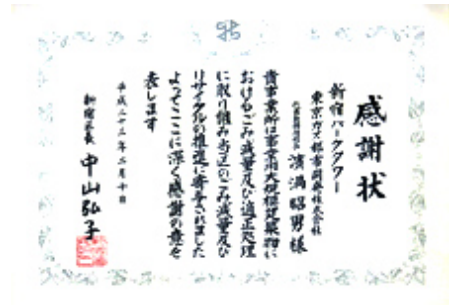 感謝状
新宿パークタワー
東京ガス都市開発株式会社
代表取締役社長 濱満昭男様
貴事業所は事業用大規模建築物に
おけるごみ減量及び適正処理
に取り組み当区のごみ減量及び
リサイクルの推進に寄与されました
よってここに深く感謝の意を
表します
平成二十三年二月十日
新宿区長 中山弘子